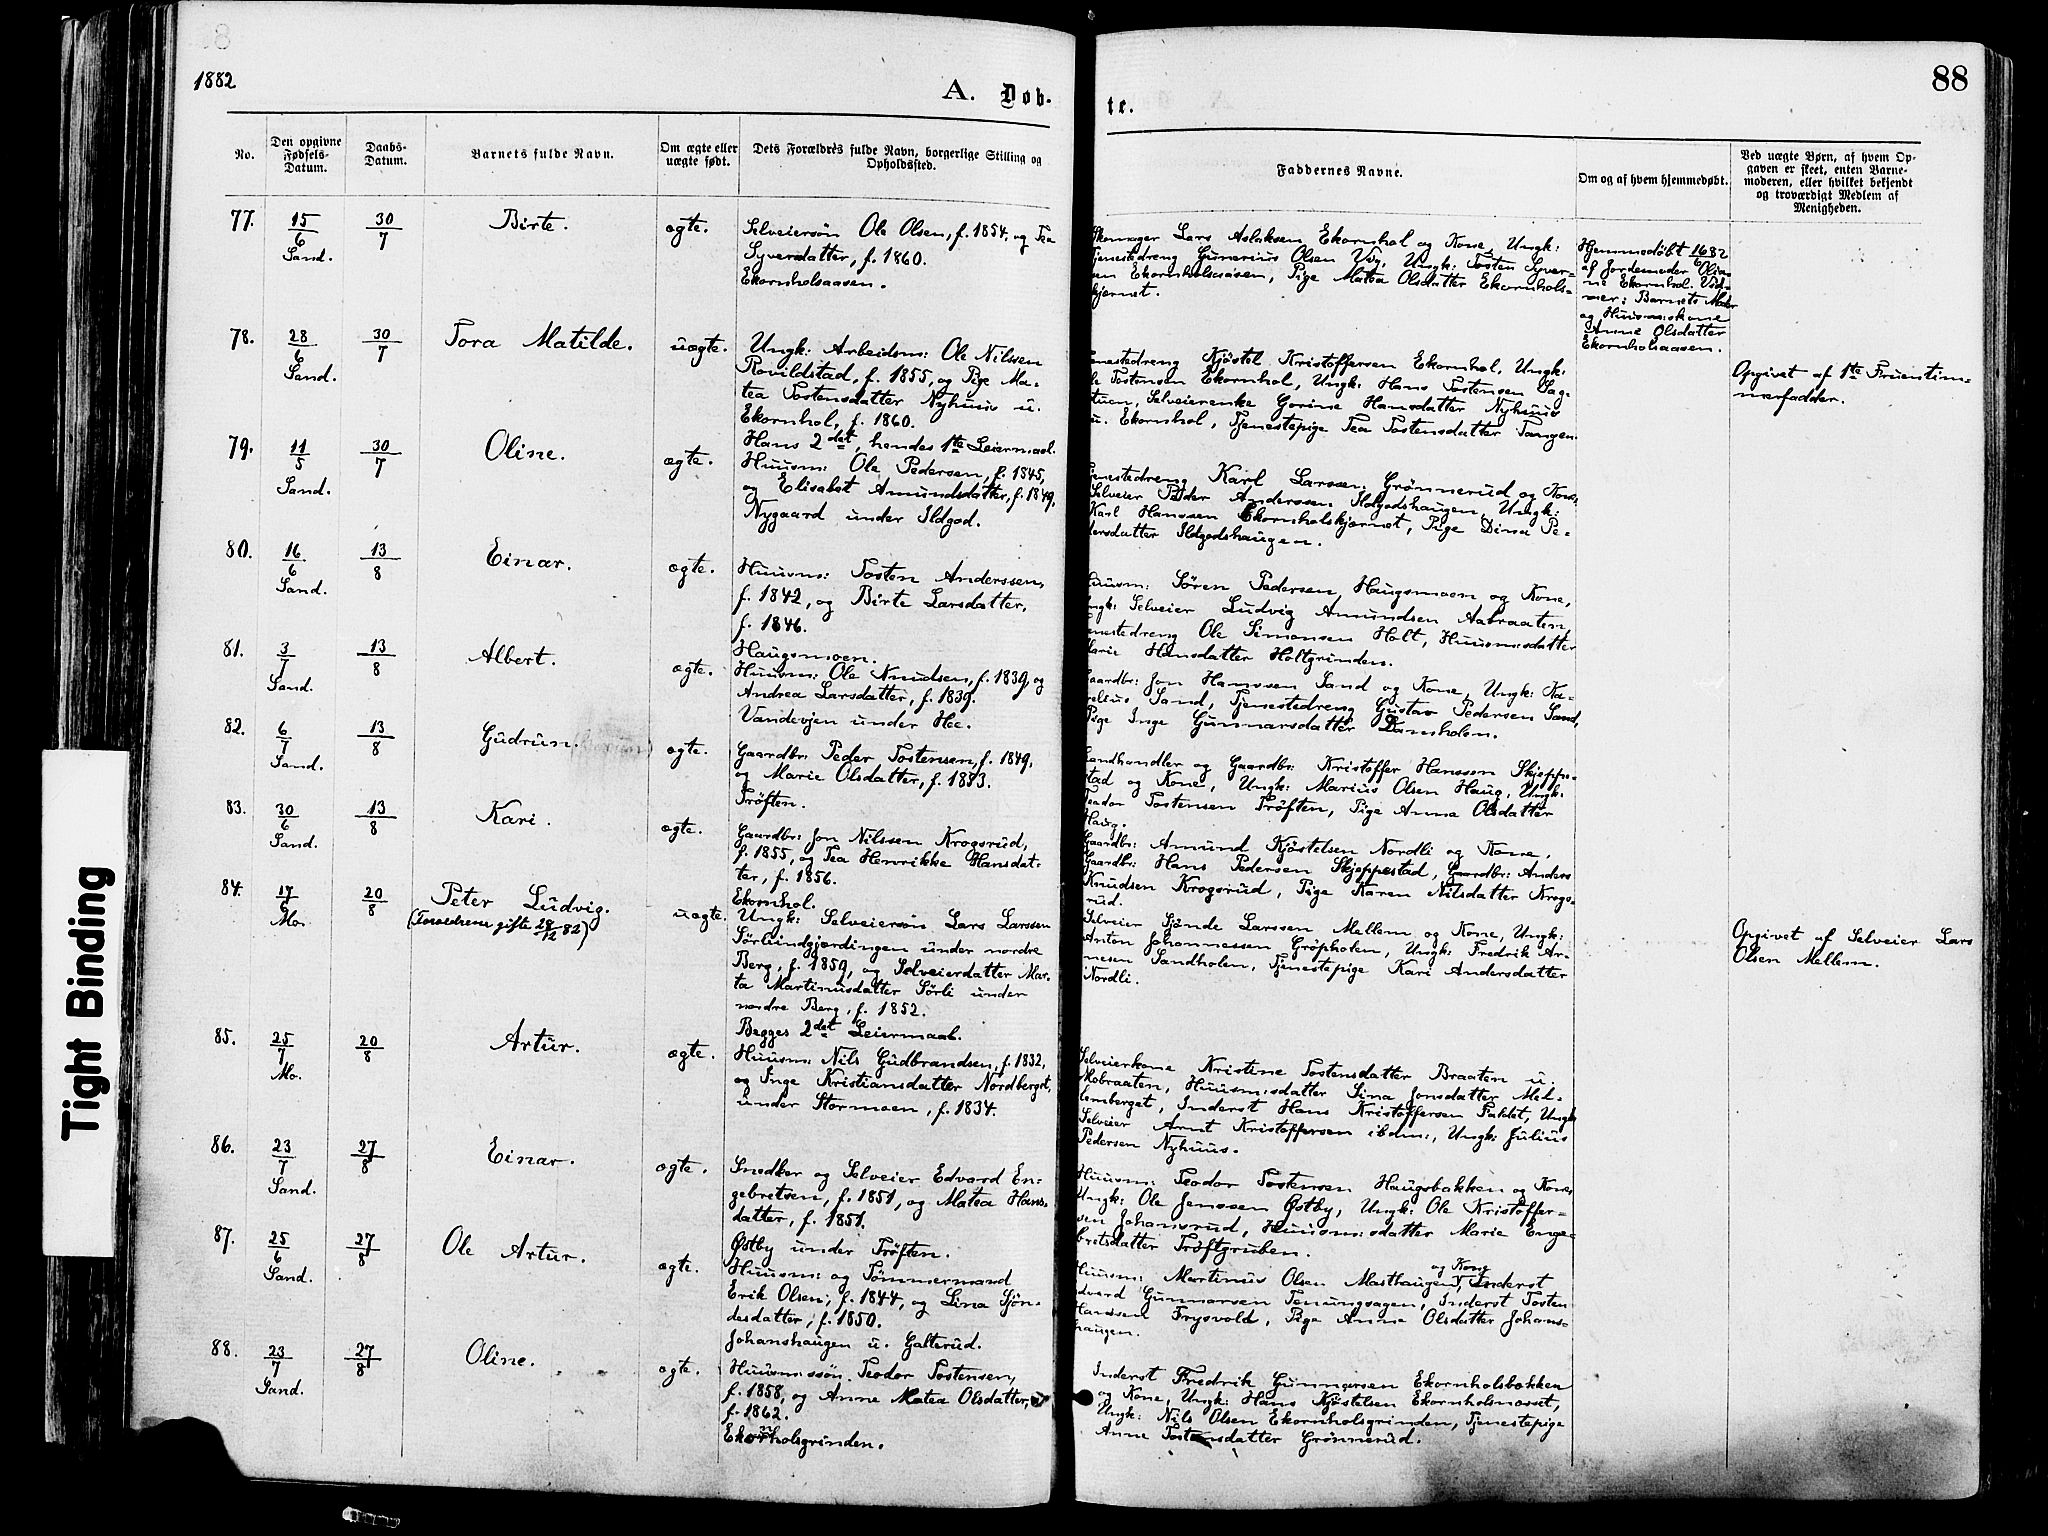 1882
A. Døb-
te.
88
No.
Den opgivne Fødsels-Datum.
Daabs-Datum.
Barnets fulde Navn.
Om ægte eller uægte født.
Dets Forældres fulde Navn, borgerlige Stilling og Opholdssted.
Faddernes Navne.
Om og af hvem hjemmedøbt.
Ved uægte Børn, af hvem Opgaven er skeet, enten Barnemoderen, eller hvilket bekjendt og troværdigt Medlem af Menigheden.
77. 15/6 Sand. 30/7 Birte. ægte.
Selveiersøn Ole Olsen, f. 1854, og Tea
Syversdatter, f. 1860.
Ekornholsaasen.
Skomager Lars Aslaksen Ekornhol og Kone, Ungk:
Tjenestedreng Gunerius Olsen Vig, Ungk: Tosten Syver-
sen Ekornholsaasen, Pige Matea Olsdatter Ekornhols-
kjernet.
Hjemmedøbt 16/6 82
af Jordemoder Oli-
ne Ekornhol. Vid-
ner: Barnets Moder
og Huusm:skone
Anne Olsdatter
Ekornholsaasen.
78. 28/6 Sand. 30/7 Tora Matilde. uægte.
Ungk: Arbeidsm: Ole Nilssen
Rovildstad, f. 1855, og Pige Ma-
tea Tostensdatter Nyhuus u.
Ekornhol, f. 1860.
Hans 2det, hendes 1te Leiermaal.
Tjenestedreng Kjøstel Kristoffersen Ekornhol, Ungk:
Ole Tostensen Ekornhol, Ungk: Hans Tostensen Sag-
stuen, Selveierenke Gorine Hansdatter Nyhuus
u. Ekornhol, Tjenestepige Tea Tostensdatter Tangen.
Opgivet af 1te Fruentim-
merfadder.
79. 11/5 Sand. 30/7 Oline. ægte.
Huusm: Ole Pedersen, f. 1845,
og Elisabet Amundsdatter, f. 1849.
Nygaard under Ildgod.
Tjenestedreng Karl Larssen Grønnerud og Kone,
Selveier Peder Anderssen Ildgodshaugen, Ungk:
Karl Hanssen Ekornholskjernet, Pige Dina Pe-
dersdatter Ildgodshaugen.
80. 16/6 Sand. 13/8 Einar. ægte.
Huusm: Tosten Anderssen,
f. 1842, og Birte Larsdatter,
f. 1846.
Haugsmoen.
Huusm: Søren Pedersen Haugsmoen og Kone,
Ungk: Selveier Ludvig Amundsen Aabraaten,
Tjenestedreng Ole Simonsen Holt, Huusm:sdatter
Marie Hansdatter Holtgrinden.
81. 3/7 Sand. 13/8 Albert. ægte.
Huusm: Ole Knudsen, f. 1839, og
Andrea Larsdatter, f. 1839.
Vandevjen under Hee.
Gaardbr: Jon Hanssen Sand og Kone, Ungk: Ka-
relius Sand, Tjenestedreng Gustav Pedersen Sand,
Pige Inge Gunnarsdatter Damholen.
82. 6/7 Sand. 13/8 Gudrun. ægte.
Gaardbr: Peder Tostensen, f. 1849,
og Marie Olsdatter, f. 1853.
Trøften.
Landhandler og Gaardbr: Kristoffer Hanssen Skjeppe-
stad og Kone, Ungk: Marius Olsen Haug, Ungk:
Teodor Tostensen Trøften, Pige Anna Olsdatter
Haug.
83. 30/6 Sand. 13/8 Kari. ægte.
Gaardbr: Jon Nilssen Krogsrud,
f. 1855, og Tea Henrikke Hansdat-
ter, f. 1856.
Ekornhol.
Gaardbr: Amund Kjøstelsen Nordli og Kone,
Gaardbr: Hans Pedersen Skjeppestad, Gaardbr: Anders
Knudsen Krogsrud, Pige Karen Nilsdatter Krogs-
rud.
84. 17/6 Mo. 20/8 Peter Ludvig. uægte.
(Forældrene gifte 28/12 82)
Ungk: Selveiersøn Lars Larssen
Sørliindgjærdingen under nordre
Berg, f. 1859, og Selveierdatter Mar-
ta Martinusdatter Sørli under
nordre Berg, f. 1852.
Begges 2det Leiermaal.
Selveier Sjønde Larssen Mellem og Kone, Ungk:
Anton Johannessen Grøpholen, Ungk: Fredrik Ar-
nesen Sandholen, Tjenestepige Kari Andersdatter
Nordli.
Opgivet af Selveier Lars
Olsen Mellem.
85. 25/7 Mo. 20/8 Artur. ægte.
Huusm: Nils Gudbrandsen, f. 1832,
og Inge Kristiansdatter Nordberget,
under Stormoen, f. 1834.
Selveierkone Kristine Tostensdatter Braaten u.
Skobraaten, Huusm:sdatter Sina Jonsdatter Mel-
lemberget, Inderst Hans Kristoffersen Faldet, Ungk:
Selveier Arnt Kristoffersen ibdm:, Ungk: Julius
Pedersen Nyhuus.
86. 23/7 Sand. 27/8 Einar. ægte.
Snedker og Selveier Edvard En-
gebretsen, f. 1851, og Matea Hans-
datter, f. 1851.
Østby under Trøften.
Huusm: Teodor Tostensen Haugsbakken og Kone,
Ungk: Ole Jenssen Østby, Ungk: Ole Kristoffer-
sen Johansrud, Huusm:sdatter Marie Enge-
bretsdatter Trøftgruben.
87. 25/6 Sand. 27/8 Ole Artur. ægte.
Huusm: og Tømmermand
Erik Olsen, f. 1844, og Lina Sjøn-
desdatter, f. 1850.
Johanshaugen u. Galterud.
Huusm: Martinus Olsen Masthaugen og Kone, Inderst
Edvard Gunnarsen Tenungsagen, Inderst Tosten
Hanssen Frysvold, Pige Anne Olsdatter Johans-
haugen.
88. 23/7 Sand. 27/8 Oline. ægte.
Huusm:ssøn Teodor Tostensen,
f. 1858, og Anne Matea Olsdatter,
f. 1862.
Ekornholsgrinden.
Inderst Fredrik Gunnarsen Ekornholsbakken
og Kone, Ungk: Hans Kjøstelsen Ekornholsmosset,
Ungk: Nils Olsen Ekornholsgrinden, Tjenestepige
Anne Tostensdatter Grønnerud.
Tight Binding